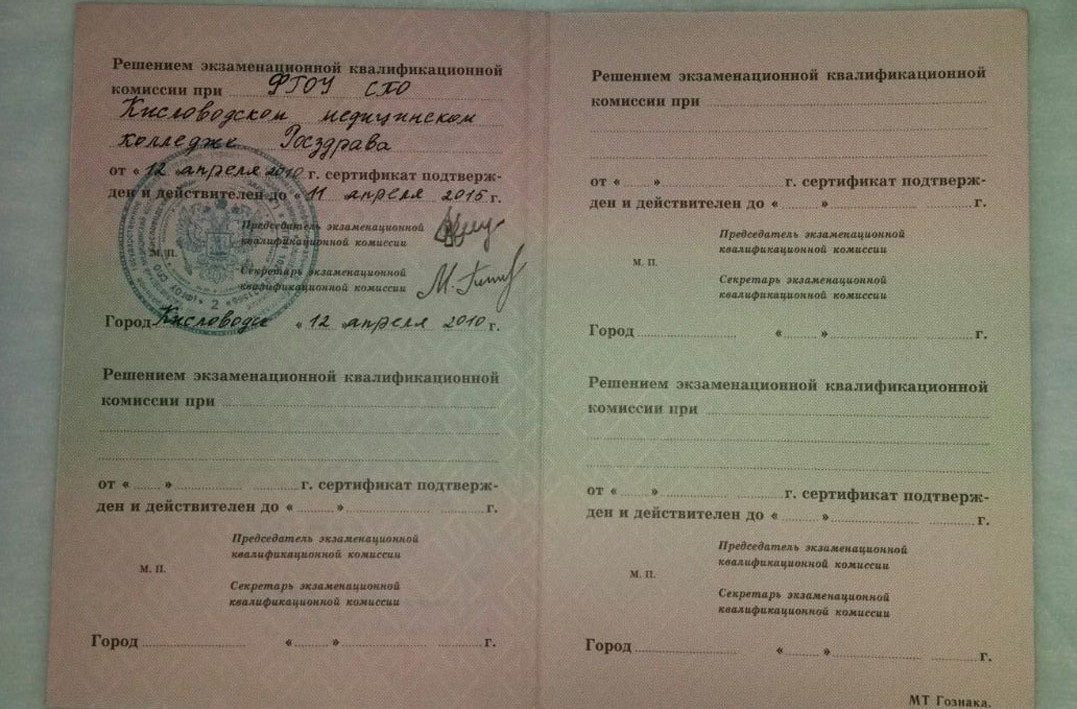 Решением экзаменационной квалификационной
комиссии при ФГОУ СПО
Кисловодском медицинском
колледже Росздрава
от « 12 » апреля 2010 г. сертификат подтверж-
ден и действителен до « 11 » апреля 2015 г.
Председатель экзаменационной
квалификационной комиссии
М. П.
Секретарь экзаменационной
квалификационной комиссии
Город Кисловодск « 12 » апреля 2010 г.
Решением экзаменационной квалификационной
комиссии при
от « » г. сертификат подтверж-
ден и действителен до « » г.
Председатель экзаменационной
квалификационной комиссии
М. П.
Секретарь экзаменационной
квалификационной комиссии
Город « » г.
Решением экзаменационной квалификационной
комиссии при
от « » г. сертификат подтверж-
ден и действителен до « » г.
Председатель экзаменационной
квалификационной комиссии
М. П.
Секретарь экзаменационной
квалификационной комиссии
Город « » г.
Решением экзаменационной квалификационной
комиссии при
от « » г. сертификат подтверж-
ден и действителен до « » г.
Председатель экзаменационной
квалификационной комиссии
М. П.
Секретарь экзаменационной
квалификационной комиссии
Город « » г.
МТ Гознака.